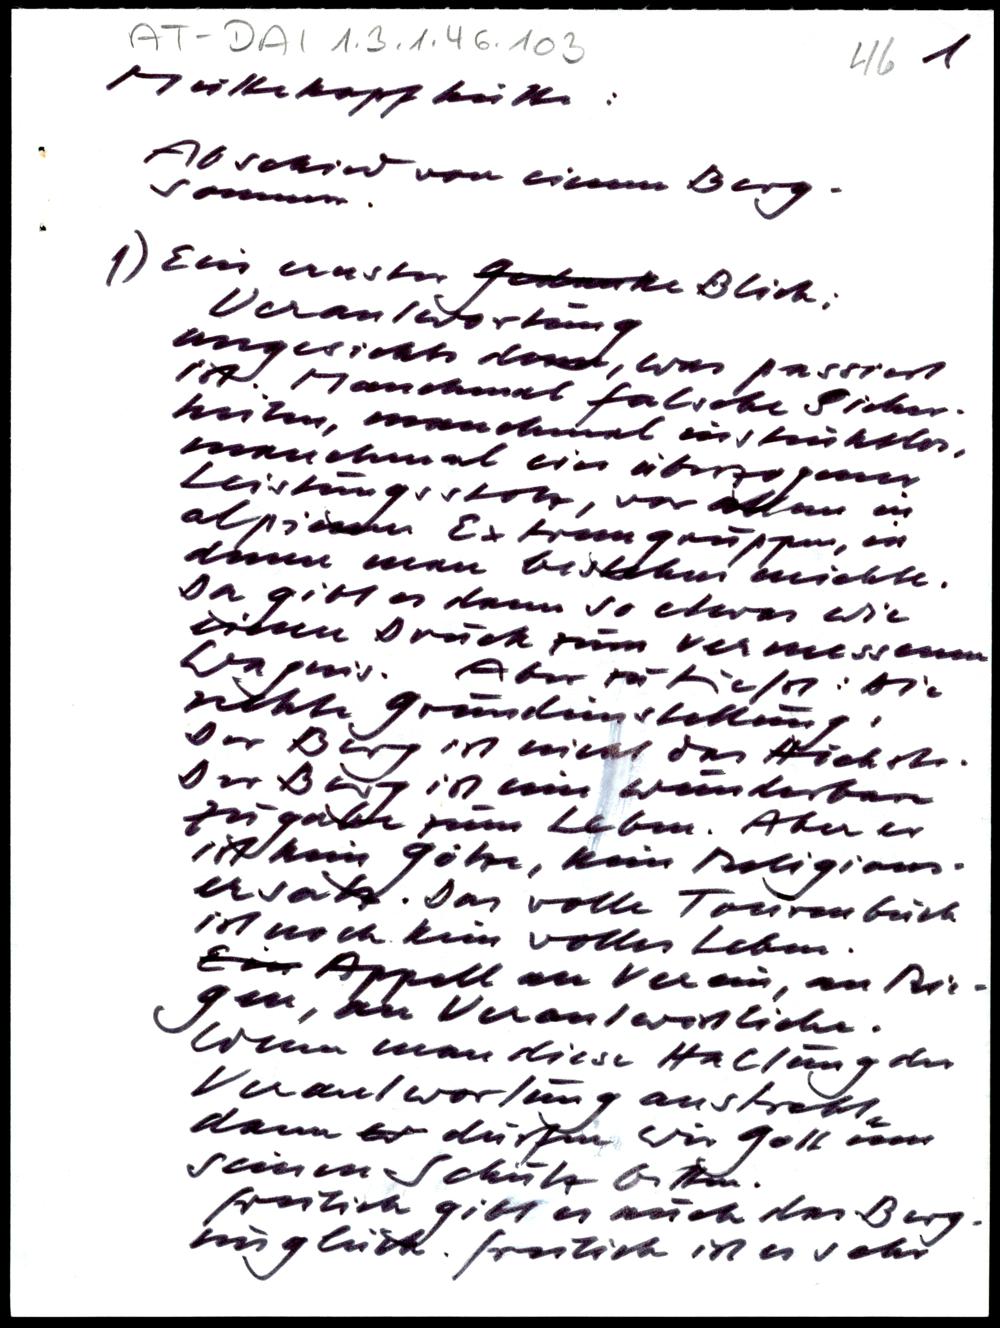 AT-DAI 1.3.1.46.103
46 1
Muttekopfhütte :
Abschied von einem Berg-
sommer.
1) Ein ernster Gedanke Blick;
Verantwortung
angesichts dem, was passiert
ist. Manchmal falsche Sicher-
heiten, manchmal instinktlos,
manchmal ein überzogener
Leistungsstolz, vor allem in
alpinen Extremgruppen, in
denen man bestehen möchte.
Da gibt es dann so etwas wie
einen Druck zum vermessenen
Wagnis. Aber zutiefst: die
rechte Grundeinstellung:
Der Berg ist nicht das Höchste.
Der Berg ist eine wunderbare
Zugabe zum Leben. Aber er
ist kein Götze, kein Religions-
ersatz. Das volle Tourenbuch
ist noch kein volles Leben.
Ein Appell an Verein, an Rie-
gen, an Verantwortliche.
Wenn man diese Haltung der
Verantwortung ausstrahlt,
dann er dürfen wir Gott um
seinen Schutz bitten.
freilich gibt es auch das Berg-
unglück. freilich ist es sehr